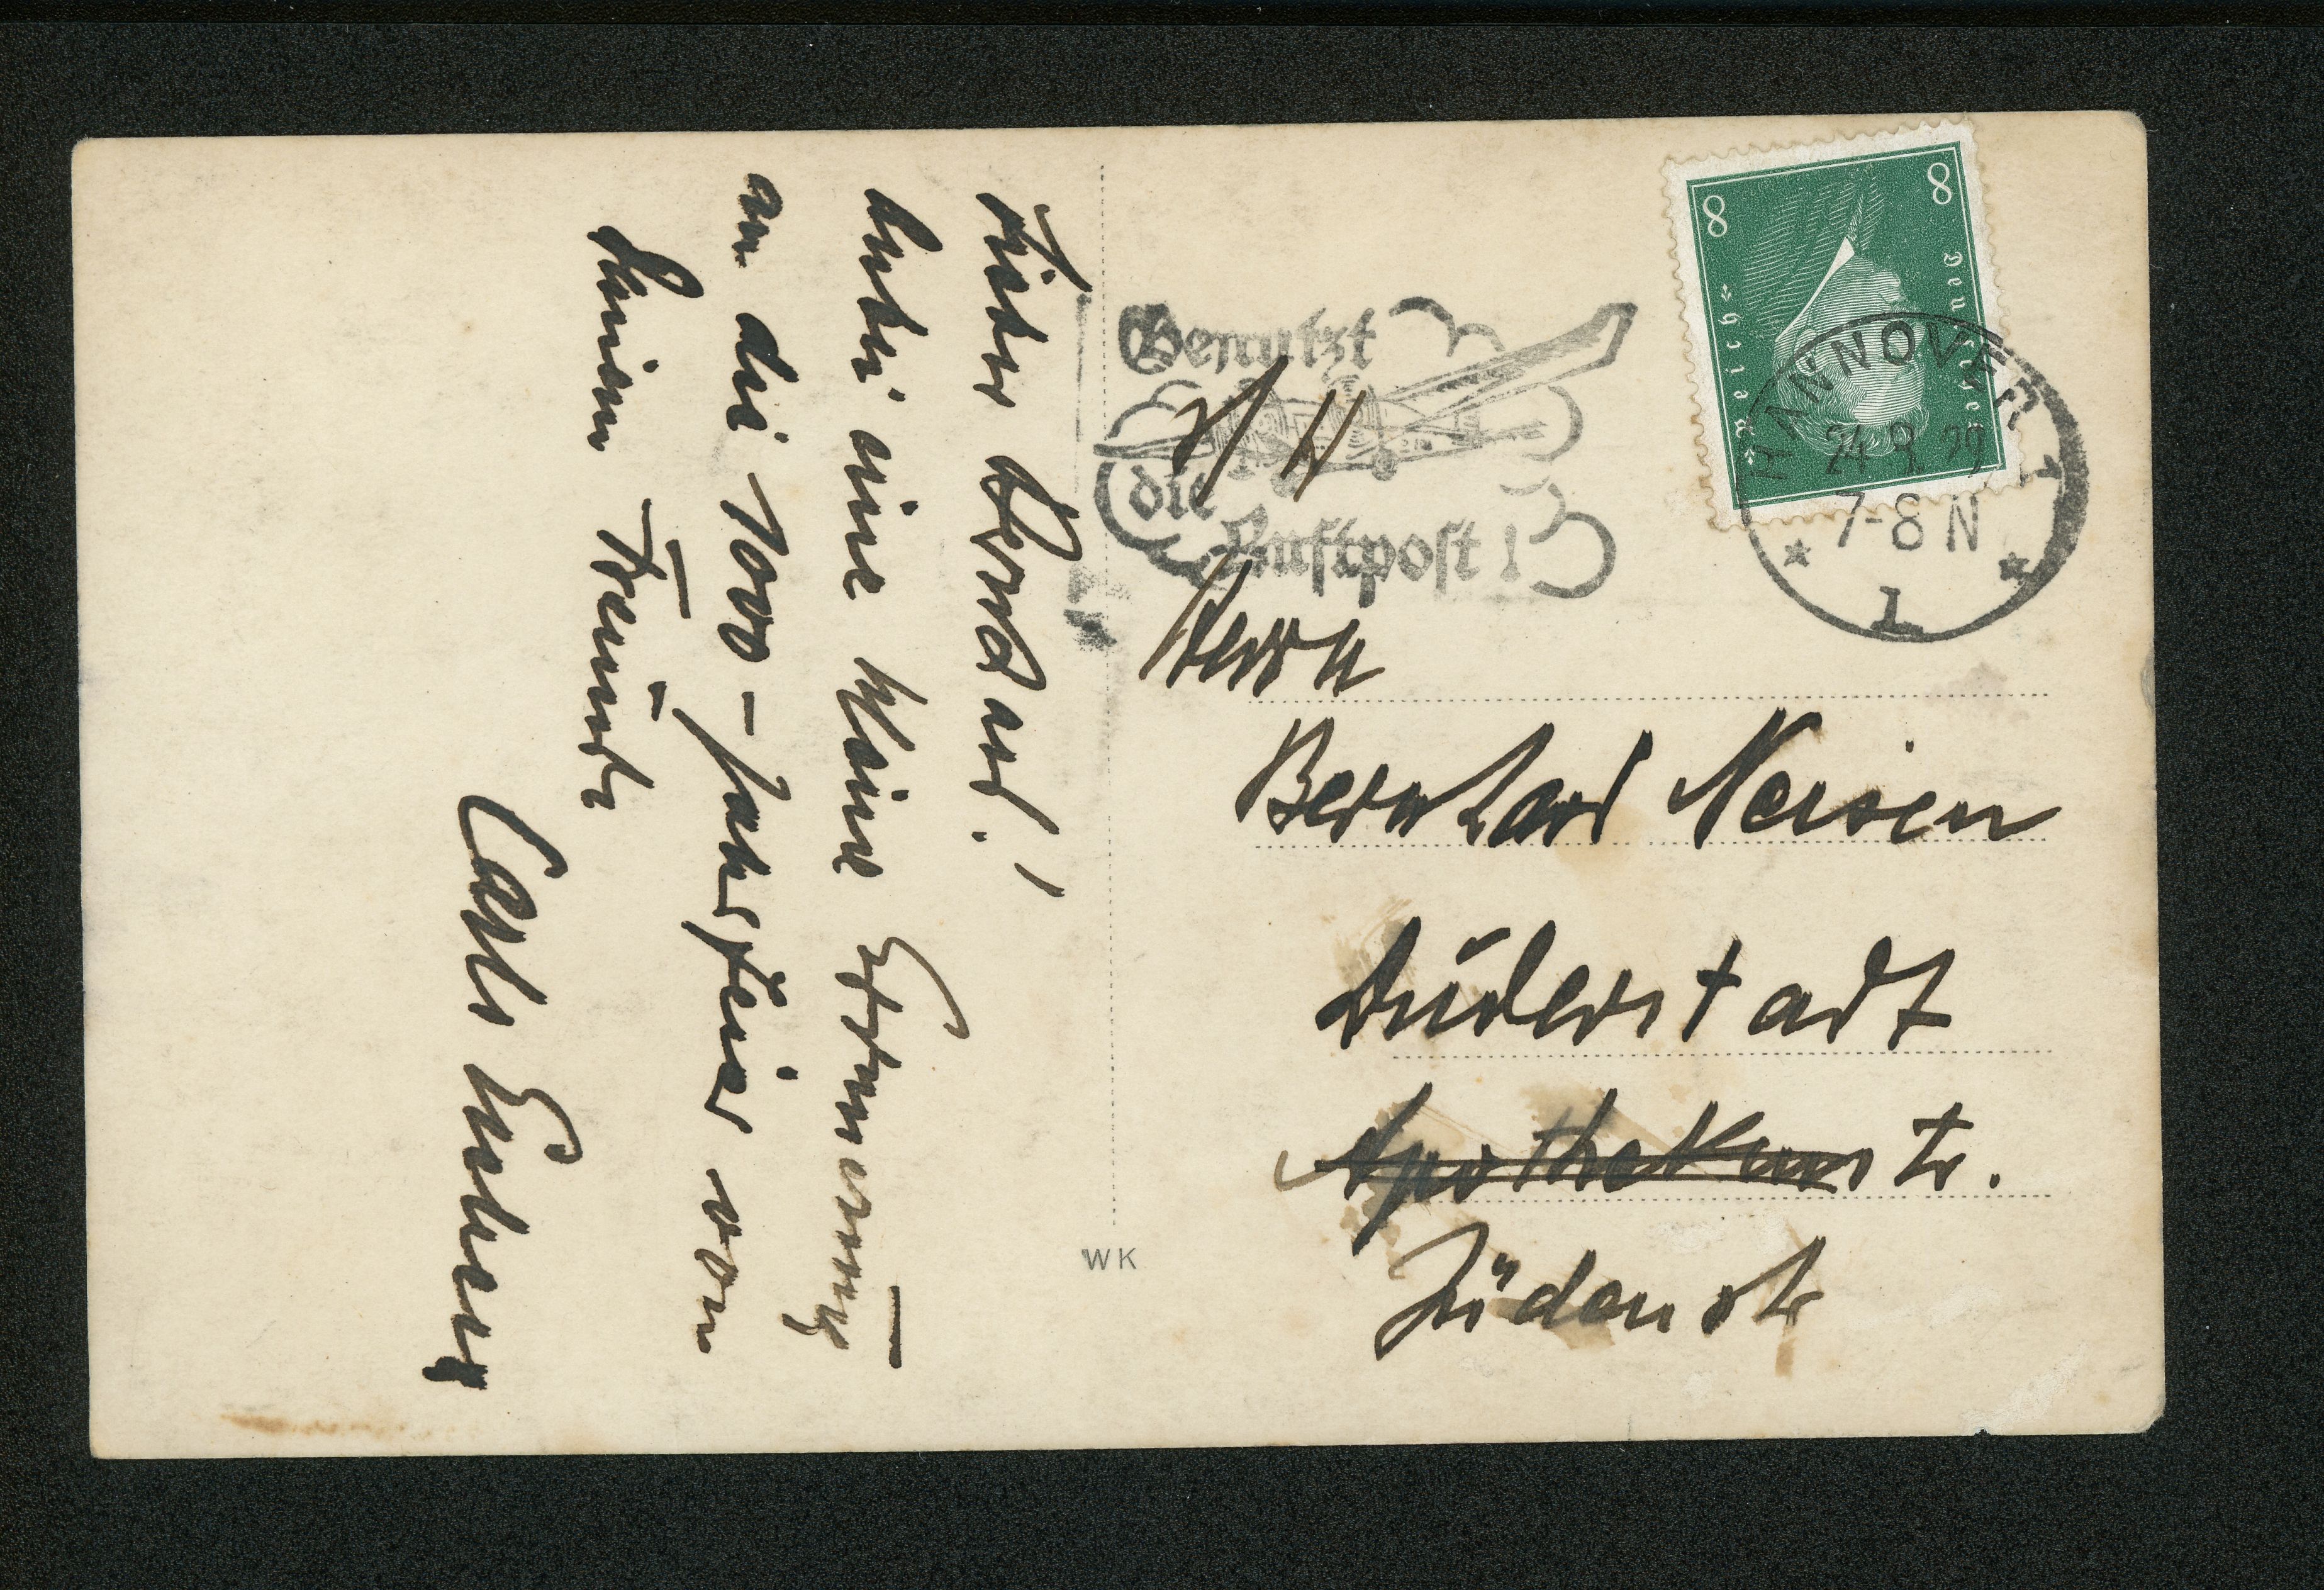 Lieber Bernard!
anbei eine kleine Erinnerung
an die 1000-Jahrfeier von
Deinem Freunde
Carl
8 8
Deutsches Reich
HANNOVER
24.9.29
7-8 N
1
Benutzt
die
Luftpost!
Herrn
Bernhard
Duderstadt
Apothekenstr.
Jüdenstr
WK